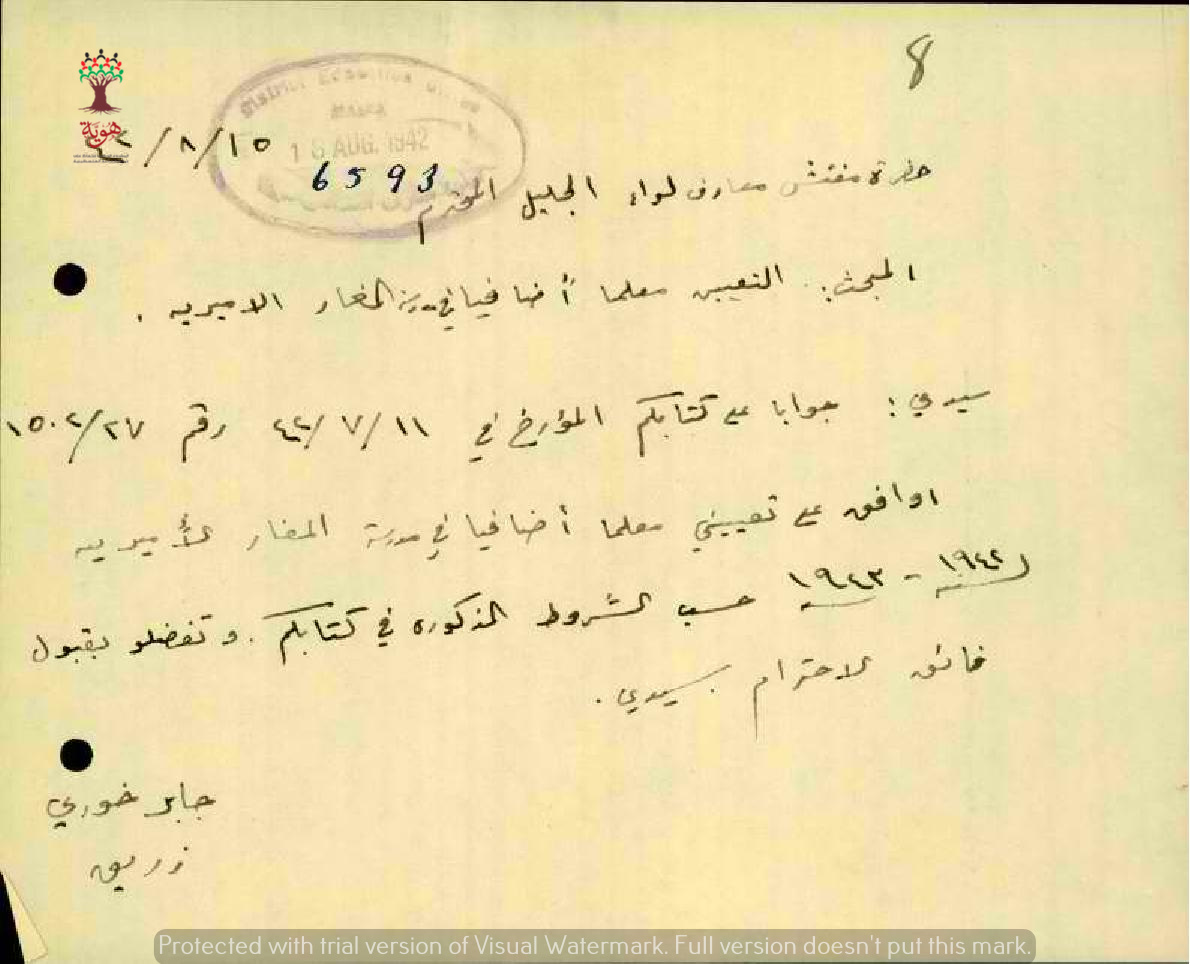 8
District Education Office
18 AUG. 1942
6593
هوية
٤٢/٨/١٥
حضرة مفتش معارف لواء الجليل المحترم
المبحث: التعيين معلما أضافيا في مدرسة المغار الاميريه .
سيدي: جوابا على كتابكم المؤرخ في ٤٢/٧/١١ رقم ١٥٠٢/٢٧
اوافق على تعييني معلما أضافيا في مدرسة المغار الأميريه
لسنة ١٩٤٢ - ١٩٤٣ حسب الشروط المذكوره في كتابكم. وتفضلو بقبول
فائق الاحترام سيدي.
جابر خوري
زريق
Protected with trial version of Visual Watermark. Full version doesn't put this mark.